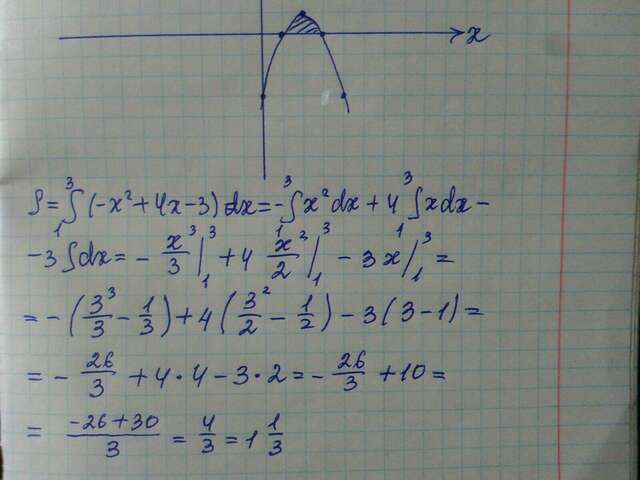 x
S = ∫₁³ (-x² + 4x - 3) dx = -∫₁³ x² dx + 4 ∫₁³ x dx -
- 3 ∫ dx = - x³/3 |₁³ + 4 x²/2 |₁³ - 3x |₁³ =
= - (3³/3 - 1/3) + 4 (3²/2 - 1/2) - 3 (3 - 1) =
= - 26/3 + 4 · 4 - 3 · 2 = - 26/3 + 10 =
= (-26 + 30)/3 = 4/3 = 1 1/3